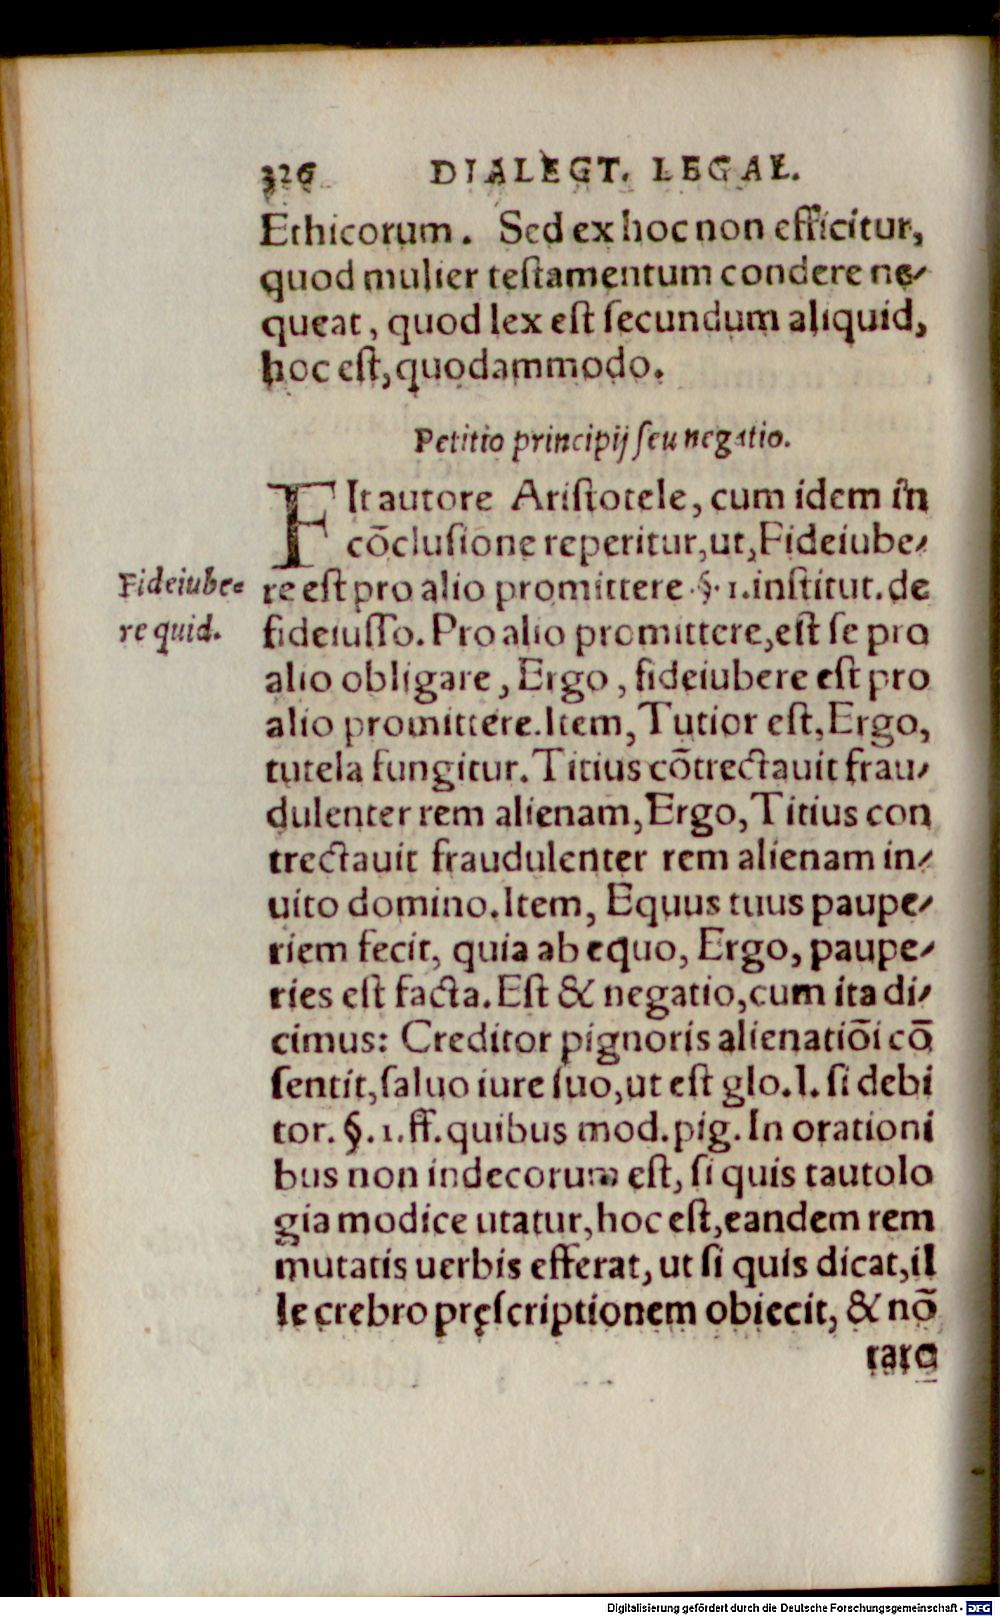 326 DIALECT. LEGAL.
Ethicorum. Sed ex hoc non efficitur,
quod mulier testamentum condere ne-
queat, quod lex est secundum aliquid,
hoc est, quodammodo.
Petitio principij seu negatio.
FIt autore Aristotele, cum idem in
cōclusione reperitur, ut, Fideiube-
Fideiube-
re quid.
re est pro alio promittere. §. 1. institut. de
fideiusso. Pro alio promittere, est se pro
alio obligare, Ergo, fideiubere est pro
alio promittere. Item, Tutior est, Ergo,
tutela fungitur. Titius cōtrectauit frau-
dulenter rem alienam, Ergo, Titius con
trectauit fraudulenter rem alienam in-
uito domino. Item, Equus tuus paupe-
riem fecit, quia ab equo, Ergo, paupe-
ries est facta. Est & negatio, cum ita di-
cimus: Creditor pignoris alienatiōi cō
sentit, saluo iure suo, ut est glo. l. si debi
tor. §. 1. ff. quibus mod. pig. In orationi
bus non indecorum est, si quis tautolo
gia modice utatur, hoc est, eandem rem
mutatis uerbis efferat, ut si quis dicat, il
le crebro pręscriptionem obiecit, & nō
raro
Digitalisierung gefördert durch die Deutsche Forschungsgemeinschaft - DFG